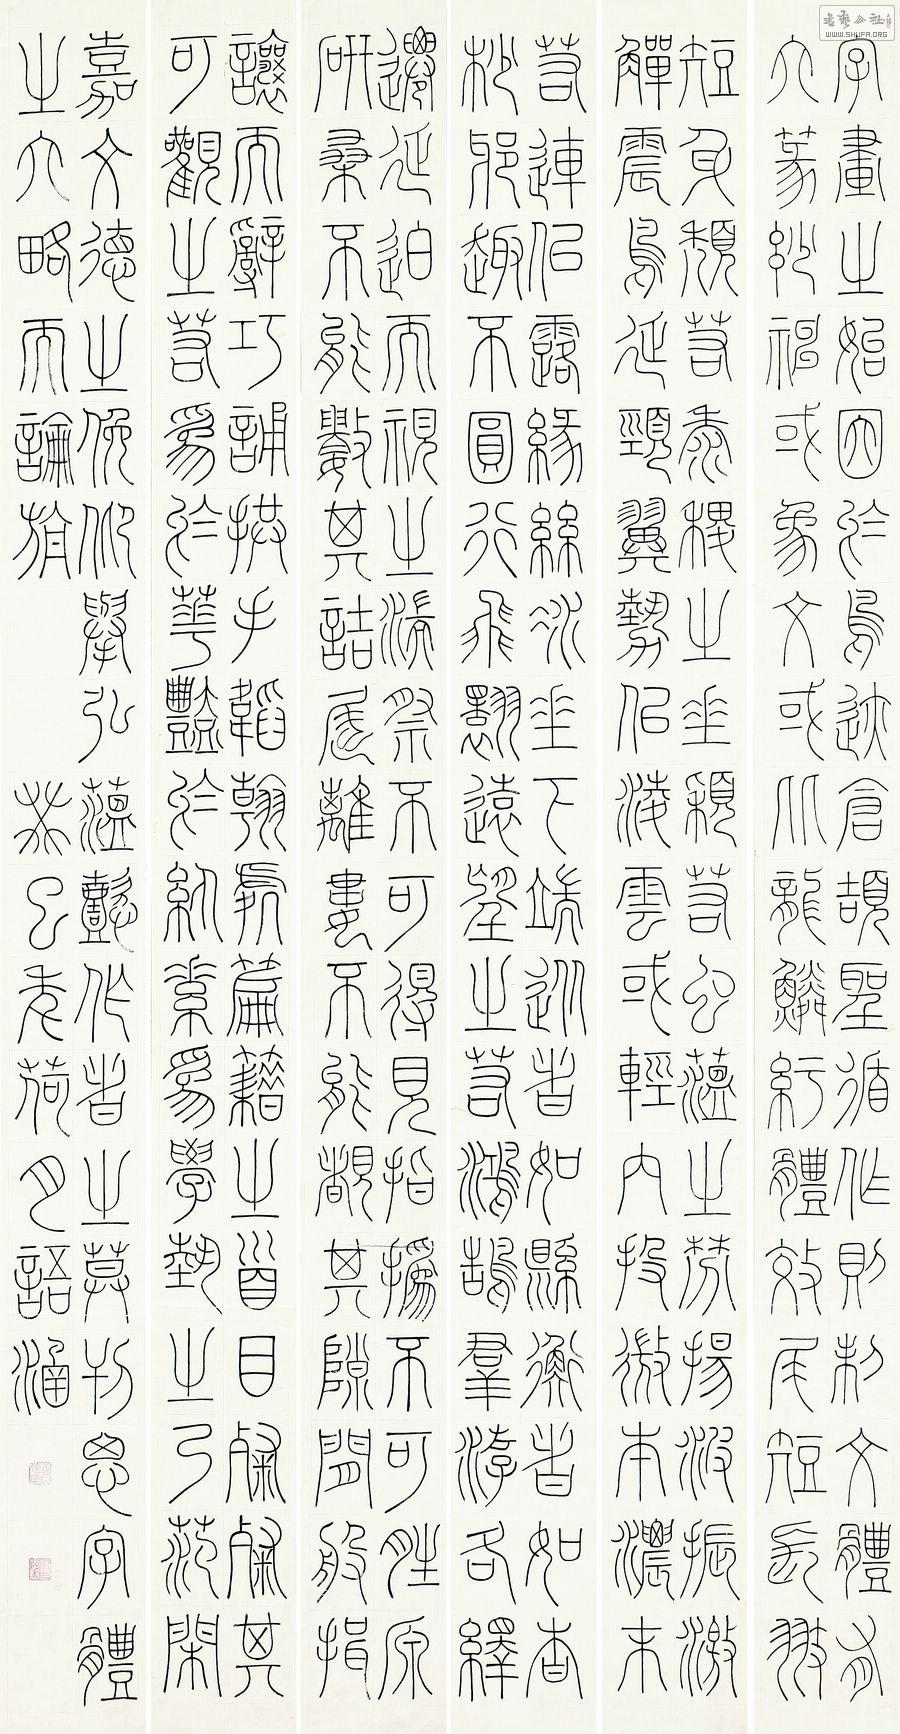 字畫之始因於鳥跡倉頡聖循作則制文體有
六篆妙神或象文或比龍鱗紆體效尾短長
短身頹若黍稷之垂穎若公蘊之焚揚波振激
震鳥延頸翼勢似凌雲或輕內投微本濃末
若連似露緣絲凝垂下端從者如縣衡者如杳
杪邪趣不圓行飛翾遠望之若鴻鵠群游各繹
遷延迫而視之湍際不可得見指撝不可勝原
研桑不能數其詰屈離婁不能覩其隙間般揖
讓而辭巧誦拱手韜翰處篇籍之首目粲粲其
可觀之若為於華豔於紈素為學藝之乃範閑
嘉文德之俛仰舉弘蘊懿作者之莫刊思字體
之大略而論旃
癸巳年荷月語涵
WWW.SHUFA.ORG